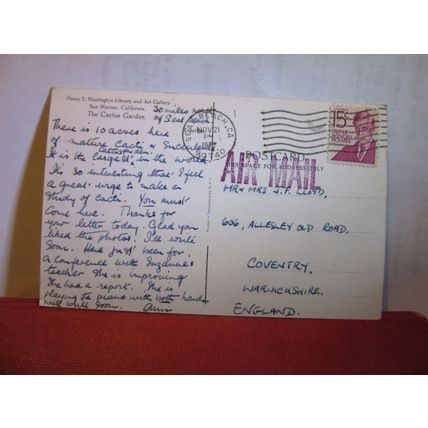 Henry E. Huntington Library and Art Gallery
San Marino, California.
The Cactus Garden
30 miles north
of Seal Beach
There is 10 acres here
of mature Cacti & Succulents
Cactus Garden.
It is the largest in the world
It's so interesting that I feel
a great urge to make an
Study of Cacti. You must
Come here. Thanks for
your letter today. Glad you
liked the photos. I'll write
Soon. Have just been for
a Conference with Suzanne's
teacher She is improving
She had a report. She is
playing the piano with both hands
will write Soon. Ann
SEAL BEACH, CA
NOV 21
PM
90740
15c
OLIVER
WENDELL
HOLMES
POSTCARD
SPACE FOR ADDRESS ONLY
AIR MAIL
MR & MRS J.F. LLOYD,
606, ALLESLEY OLD ROAD,
COVENTRY,
WARWICKSHIRE.
ENGLAND.